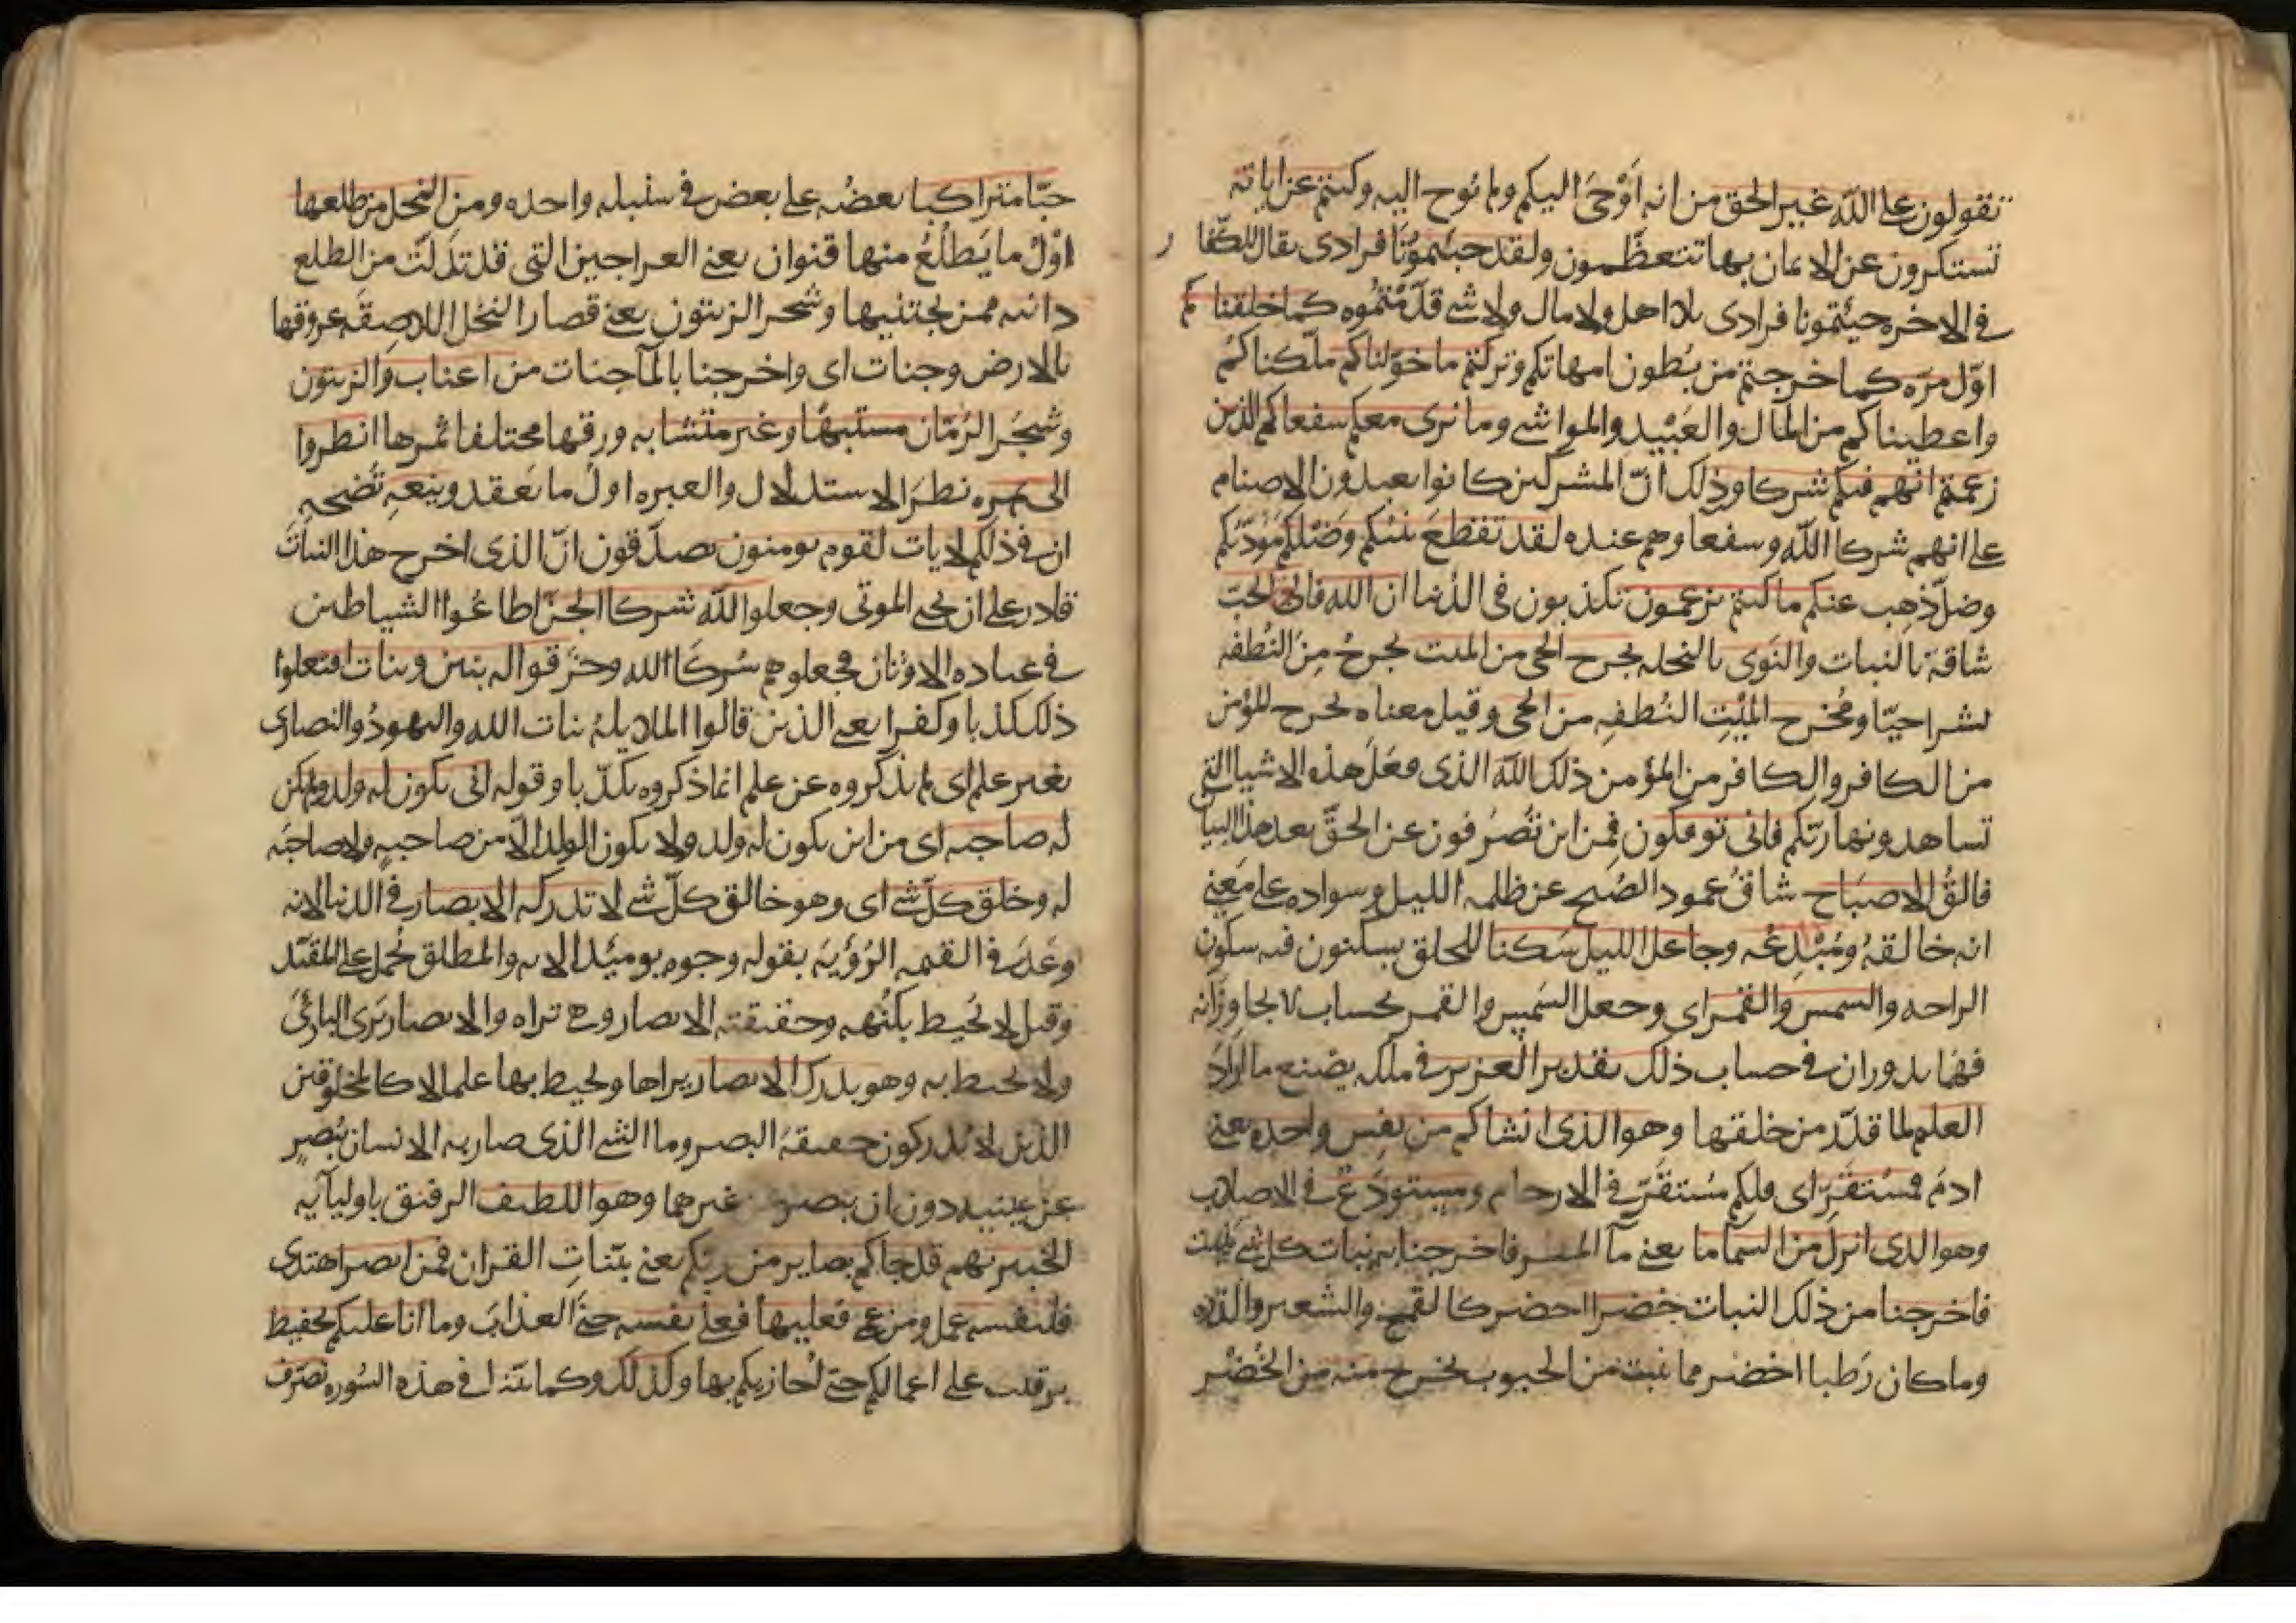 تقولون على الله غير الحق من انه اوحى اليكم ولم نوح اليه وكنتم عن اياته
تستكبرون عن الايمان بها تتعظمون ولقد جيتمونا فرادى يقال للكفار
في الاخره جيئتمونا فرادى بلا اهل ولا مال ولا شى قدمتموه كما خلقناكم
اول مره كما خرجتم من بطون امهاتكم وتركتم ما خولناكم ملكناكم
واعطيناكم من المال والعبيد والمواشى وما نرى معكم سفعاكم الذين
زعمتم انهم فيكم شركا وذلك ان المشركين كانوا يعبدون الاصنام
على انهم شركا الله وسفعاوهم عنده لقد تقطع بينكم وصلكم مودتكم
وضل ذهب عنكم ما كنتم تزعمون تكذبون فى الدنيا ان الله فالق الحب
شاقه بالنبات والنوى بالنخله يخرج الحى من الميت يخرج من النطفه
بشرا حيا ومخرج الميت النطفه من الحى وقيل معناه يخرج المؤمن
من الكافر والكافر من المؤمن ذلك الله الذى فعل هذه الاشيا التى
تساهدونها ربكم فانى توفكون فمن اين تصرفون عن الحق بعد هذا البيان
فالق الاصباح شاق عمود الصبح عن ظلمه الليل وسواده على معنى
انه خالقه ومبدعه وجاعل الليل سكنا للخلق يسكنون فيه سكون
الراحه والسمس والقمر اى وجعل السمس والقمر بحساب لا يجاوزانه
فهما يدوران فى حساب ذلك تقدير العزيز فى ملكه يصنع ما اراد
العليم لما قدر من خلقها وهو الذى انشاكم من نفس واحده يعنى
ادم فمستقر اى فلكم مستقر فى الارحام ومستودع فى الاصلاب
وهو الذى انزل من السما ما يعنى مآ المطر فاخرجنا به نبات كل شى ينبت
فاخرجنا من ذلك النبات خضرا اخضر كالقمح والشعير والذره
وما كان رطبا اخضر مما ينبت من الحبوب نخرج منه من الخضر
حبا متراكبا بعضه على بعض فى سنبله واحده ومن النخل من طلعها
اول ما يطلع منها قنوان يعنى العراجين التى قد تدلت من الطلع
دانيه ممن يجتنيها وشجر الزيتون يعنى قصار النخل اللاصقه عروقها
بالارض وجنات اى واخرجنا بالمآ جنات من اعناب والزيتون
وشجر الرمان مستبها وغير متشابه ورقها مختلفا ثمرها انظروا
الى ثمره نظر الاستدلال والعبره اول ما يعقد وينعه نضجه
ان فى ذلكم لايات لقوم يومنون يصدقون ان الذى اخرج هذا النبات
قادر على ان يحيى الموتى وجعلوا الله شركا الجن اطاعوا الشياطين
فى عباده الاوثان فجعلوهم شركا الله وخرقوا له بنين وبنات افتعلوا
ذلك كذبا وكفرا يعنى الذين قالوا الملايله بنات الله واليهود والنصارى
بغير علم اى لم يذكروه عن علم انما ذكروه تكذبا وقوله انى يكون له ولد ولم تكن
له صاحبه اى من اين يكون له ولد ولا يكون الولد الا من صاحبه ولا صاحبه
له وخلق كل شى اى وهو خالق كل شى لا تدركه الابصار فى الدنيا لانه
وعد فى القيمه الرؤيه بقوله وجوه يوميئذ الايه والمطلق يحمل على المقيد
وقيل لا يحيط بكنهه وحقيقته الابصار وهى تراه والابصار ترى البارئ
ولا تحيط به وهو يدرك الابصار يراها ويحيط بها علما لا كالمخلوقين
الذين لا يدركون حقيقه البصر وما الشى الذى صار به الانسان يبصر
عن عينيه دون ان يبصر غيرهما وهو اللطيف الرفيق باوليآيه
الخبير بهم قد جاكم بصاير من ربكم يعنى بينات القران فمن ابصر اهتدى
فلنفسه عمل ومن عمى فعليها فعلى نفسه جنى العذاب وما انا عليكم بحفيظ
برقيب على اعمالكم حتى اجازيكم بها وكذلك وكما بينا فى هذه السوره نصرف